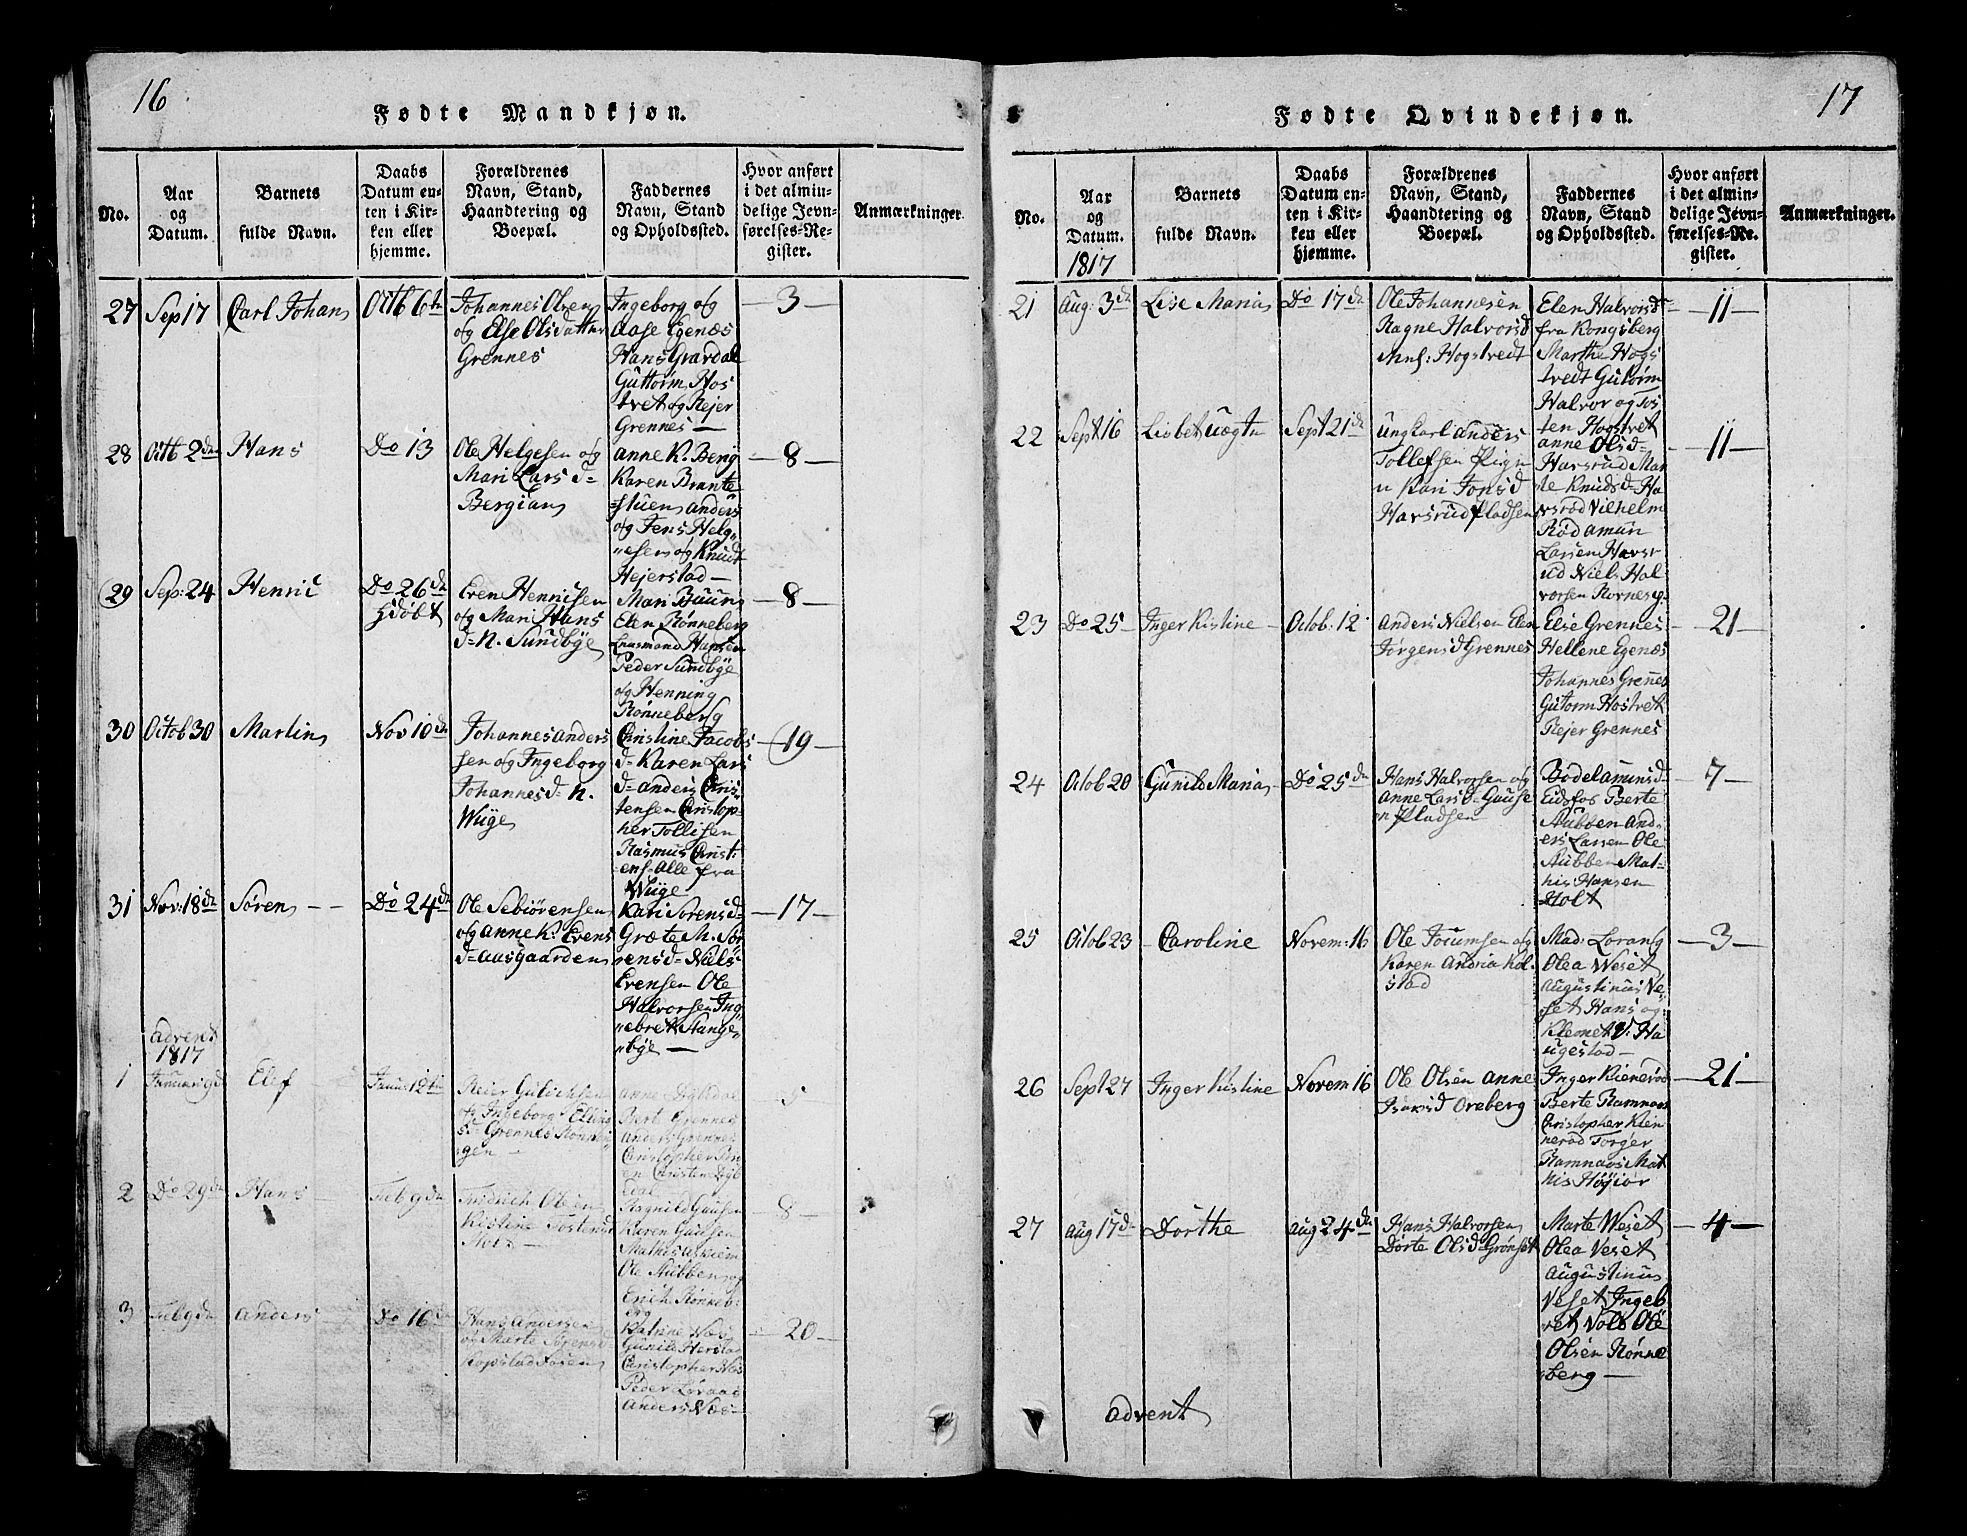 16
Fødte Mandkjøn.
No.
Aar
og
Datum.
Barnets
fulde Navn.
Daabs
Datum en-
ten i Kir-
ken eller
hjemme.
Forældrenes
Navn, Stand,
Haandtering og
Boepæl.
Faddernes
Navn, Stand
og Opholdssted.
Hvor anført
i det almin-
delige Jevn-
førelses-Re-
gister.
Anmærkninger
27
Sep 17
Carl Johan
Octb 6te
Johannes Olsen
og Else Olsdatter
Grennes
Ingeborg og
Aase Egenæs
Hans Grardal
Guttorm Hos
tvet og Rejer
Grennes —
— 3 —
28
Octb 2de
Hans
Do 13
Ole Helgesen og
Mari Lars d=
Bergian
anne K. Berg
Karen Brante
=stuen anders
og Jens Helg
"esen og Knudt
Hejerstad —
— 8 —
29
Sep: 24
Henric
Do 26de
Hidøbt
Even Henricsen
og Mari Hans
d= N. Sundbye
Mari Buun
Elen Rønneberg
Hansen
Peder Sundbye
og Henning
Rønneberg
— 8 —
30
Octob 30
Martin
Nov 10de
Johannes anders
sen og Ingeborg
Johannes d= N.
Wiige
Christine Jacobs
d= Karen Lars
d= anders Chris
tensen Christop
her Tollisen
Rasmus Christ:
ens= alle fra
Wiige
— 19 —
31
Nov: 18de
Søren — —
Do 24de
Ole Sebiørensen
og anne K: Evens
d= aasgaarden
Kari Sorensd=
Græte M. Sør
rensd= Niels
Evensen Ole
Halvorsen Ing
"ebret Stange
"bye —
— 17 —
advent
1817
1
Januari 9d
Elef
Reier Gulichsen
og Ingeborg Elling
sd= Grennes Rønnin
gen —
anne Dybsdal
Bert Grennes
Anders Grennes
Christopher
en Christen Dyb
dal
— 5 —
2
Do 29de
Hans
Feb 9de
Fridrich Olsen
Kistine Tostensd
Holt —
Ragnild Gausen
Karen Gausen
Mathis askiem
Ole Stubben og
Erich Rønneb
erg
— 8 —
3
Feb 9de
anders
Do 16de
Hans Andersen
og Marte Sørensd
Kopstad
Katrine Næs
Gunild Herstad
Christopher Næs
Peder Lørans
Anders Næs —
— 20 —
17
Fødte Qvindekjøn.
No.
Aar
og
Datum.
1817
Barnets
fulde Navn.
Daabs
Datum en-
ten i Kir-
ken eller
hjemme.
Forældrenes
Navn, Stand,
Haandtering og
Boepæl.
Faddernes
Navn, Stand
og Opholdssted.
Hvor anført
i det almin-
delige Jevn-
førelses-Re-
gister.
Anmærkninger.
21
Aug: 3de
Lise Maria
Do 17de
Ole Johannesen
Ragne Halvorsd
Hogstvedt
Elen Halvorsd=
fra Kongsberg
Marthe Hogs
tvedt Gutorm
Halvor og Tos
ten Hogstvet
— 11 —
22
Sept 16
Lisbet Uægte
Sept 21de
Ungkarl anders
Tollefsen Pigen
Kari Jonsd
Havsrud Pladsen
anne Olsd=
Havsrud Mar
te Knudsd= Ha
vsrød Vilhelm
Rød amun
Larsen Havsr
ud Niels Hal
vorsen Kornes
— 11 —
23
Do 25
Inger Kistine
Octob. 12
Anders Nielsen Elen
Jørgensd Grennes
Else Grennes
Hellene Egenæs
Johannes Grennes
Gutorm Hostvet
Rejer Grennes
— 21 —
24
Octob 20
Gunild Maria
Do 25de
Hans Halvorsen og
Anne Larsd= Gause
n Pladsen
Bodel amunsd=
Eidsfos Berte
Stubben And
ers Larsen Ole
Stubben Mat-
his Hansen
Holt
— 7 —
25
Octob 23
Caroline
Novem: 16
Ole Jocumsen og
Karen Andria Kol
stad
Mad: Lorang
Olea Weset
augustinus Ve
set Hans og
V: Ha
ugestad —
— 3 —
26
Sept 27
Inger Kistine
Novem 16
Ole Olsen anne
Isacsd Oreberg
Inger Kienerød
Berte Ramnaas
Christopher Kien
nerød Torger
Ramnaas Mat
his Høyior
— 21 —
27
Aug 17de
Dorthe
aug 24de
Hans Halvorsen
Dorte Olsd= Grønset
Marte Weset
Olea Veset
augustinus
Veset Ingeb
ret Vold Ole
Olsen Rønne
berg —
— 4 —
advent